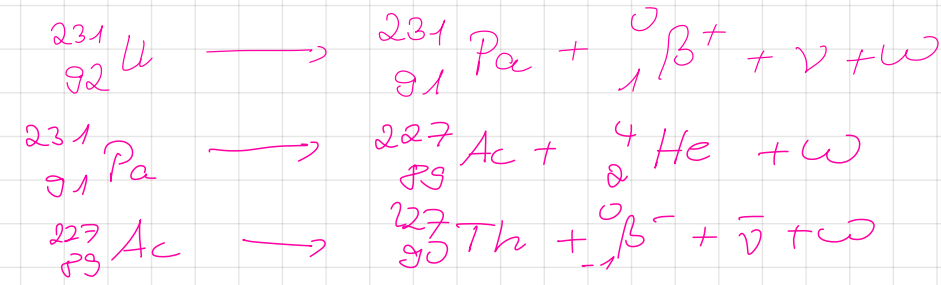 ²³¹₉₂U → ²³¹₉₁Pa + ⁰₁β⁺ + ν + ω
²³¹₉₁Pa → ²²⁷₈₉Ac + ⁴₂He + ω
²²⁷₈₉Ac → ²²⁷₉₀Th + ⁰₋₁β⁻ + ν̄ + ω